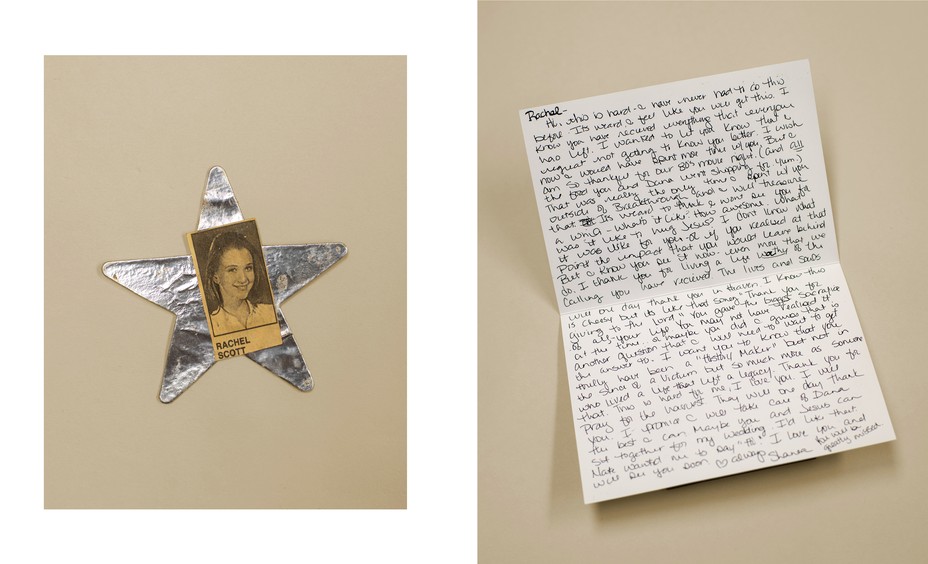 RACHEL
SCOTT
Rachel-
Hi, this is hard-I have never had to do this
before. Its weird I feel like you will get this. I
know you have recieved everything that everyone
has left. I wanted to let you know that I
regret not getting to know you better. I wish
now I would have spent more time w/you. But I
am so thankful for our 80's movie night. (and all
the food you and Dana went shopping for. Yum.)
That was really the only time I spent w/ you
outside of Breakthrough and I will treasure
that. Its weird to think I won't see you for
a while - What's it like? How awesome. What
was it like to hug Jesus? I don't know what
it was like for you or if you realized at that
point the impact that you would leave behind
But I know you see it now even more than we
do. I thank you for living a life worthy of the
calling you have recieved. The lives and souls
will one day thank you in Heaven. I know this
is cheesy but its like that song "Thank you for
giving to the Lord" You gave the biggest sacrifice
of all-your life. You may not have realized it
at the time or maybe you did I guess that is
another question that I will need to wait to get
the answer to. I want you to know that you
truely have been a "History Maker" but not in
the sense of a victim but so much more as someone
who lived a life that left a legacy. Thank you for
that. This is hard for me, I love you. I will
pray for the harvest. They will one day thank
you. I promise I will take care of Dana
the best I can. Maybe you and Jesus can
sit together for my wedding. I'd like that.
Nate wanted me to say "Hi". I love you and
will see you soon ♡ always Shanea
You will be
greatly missed